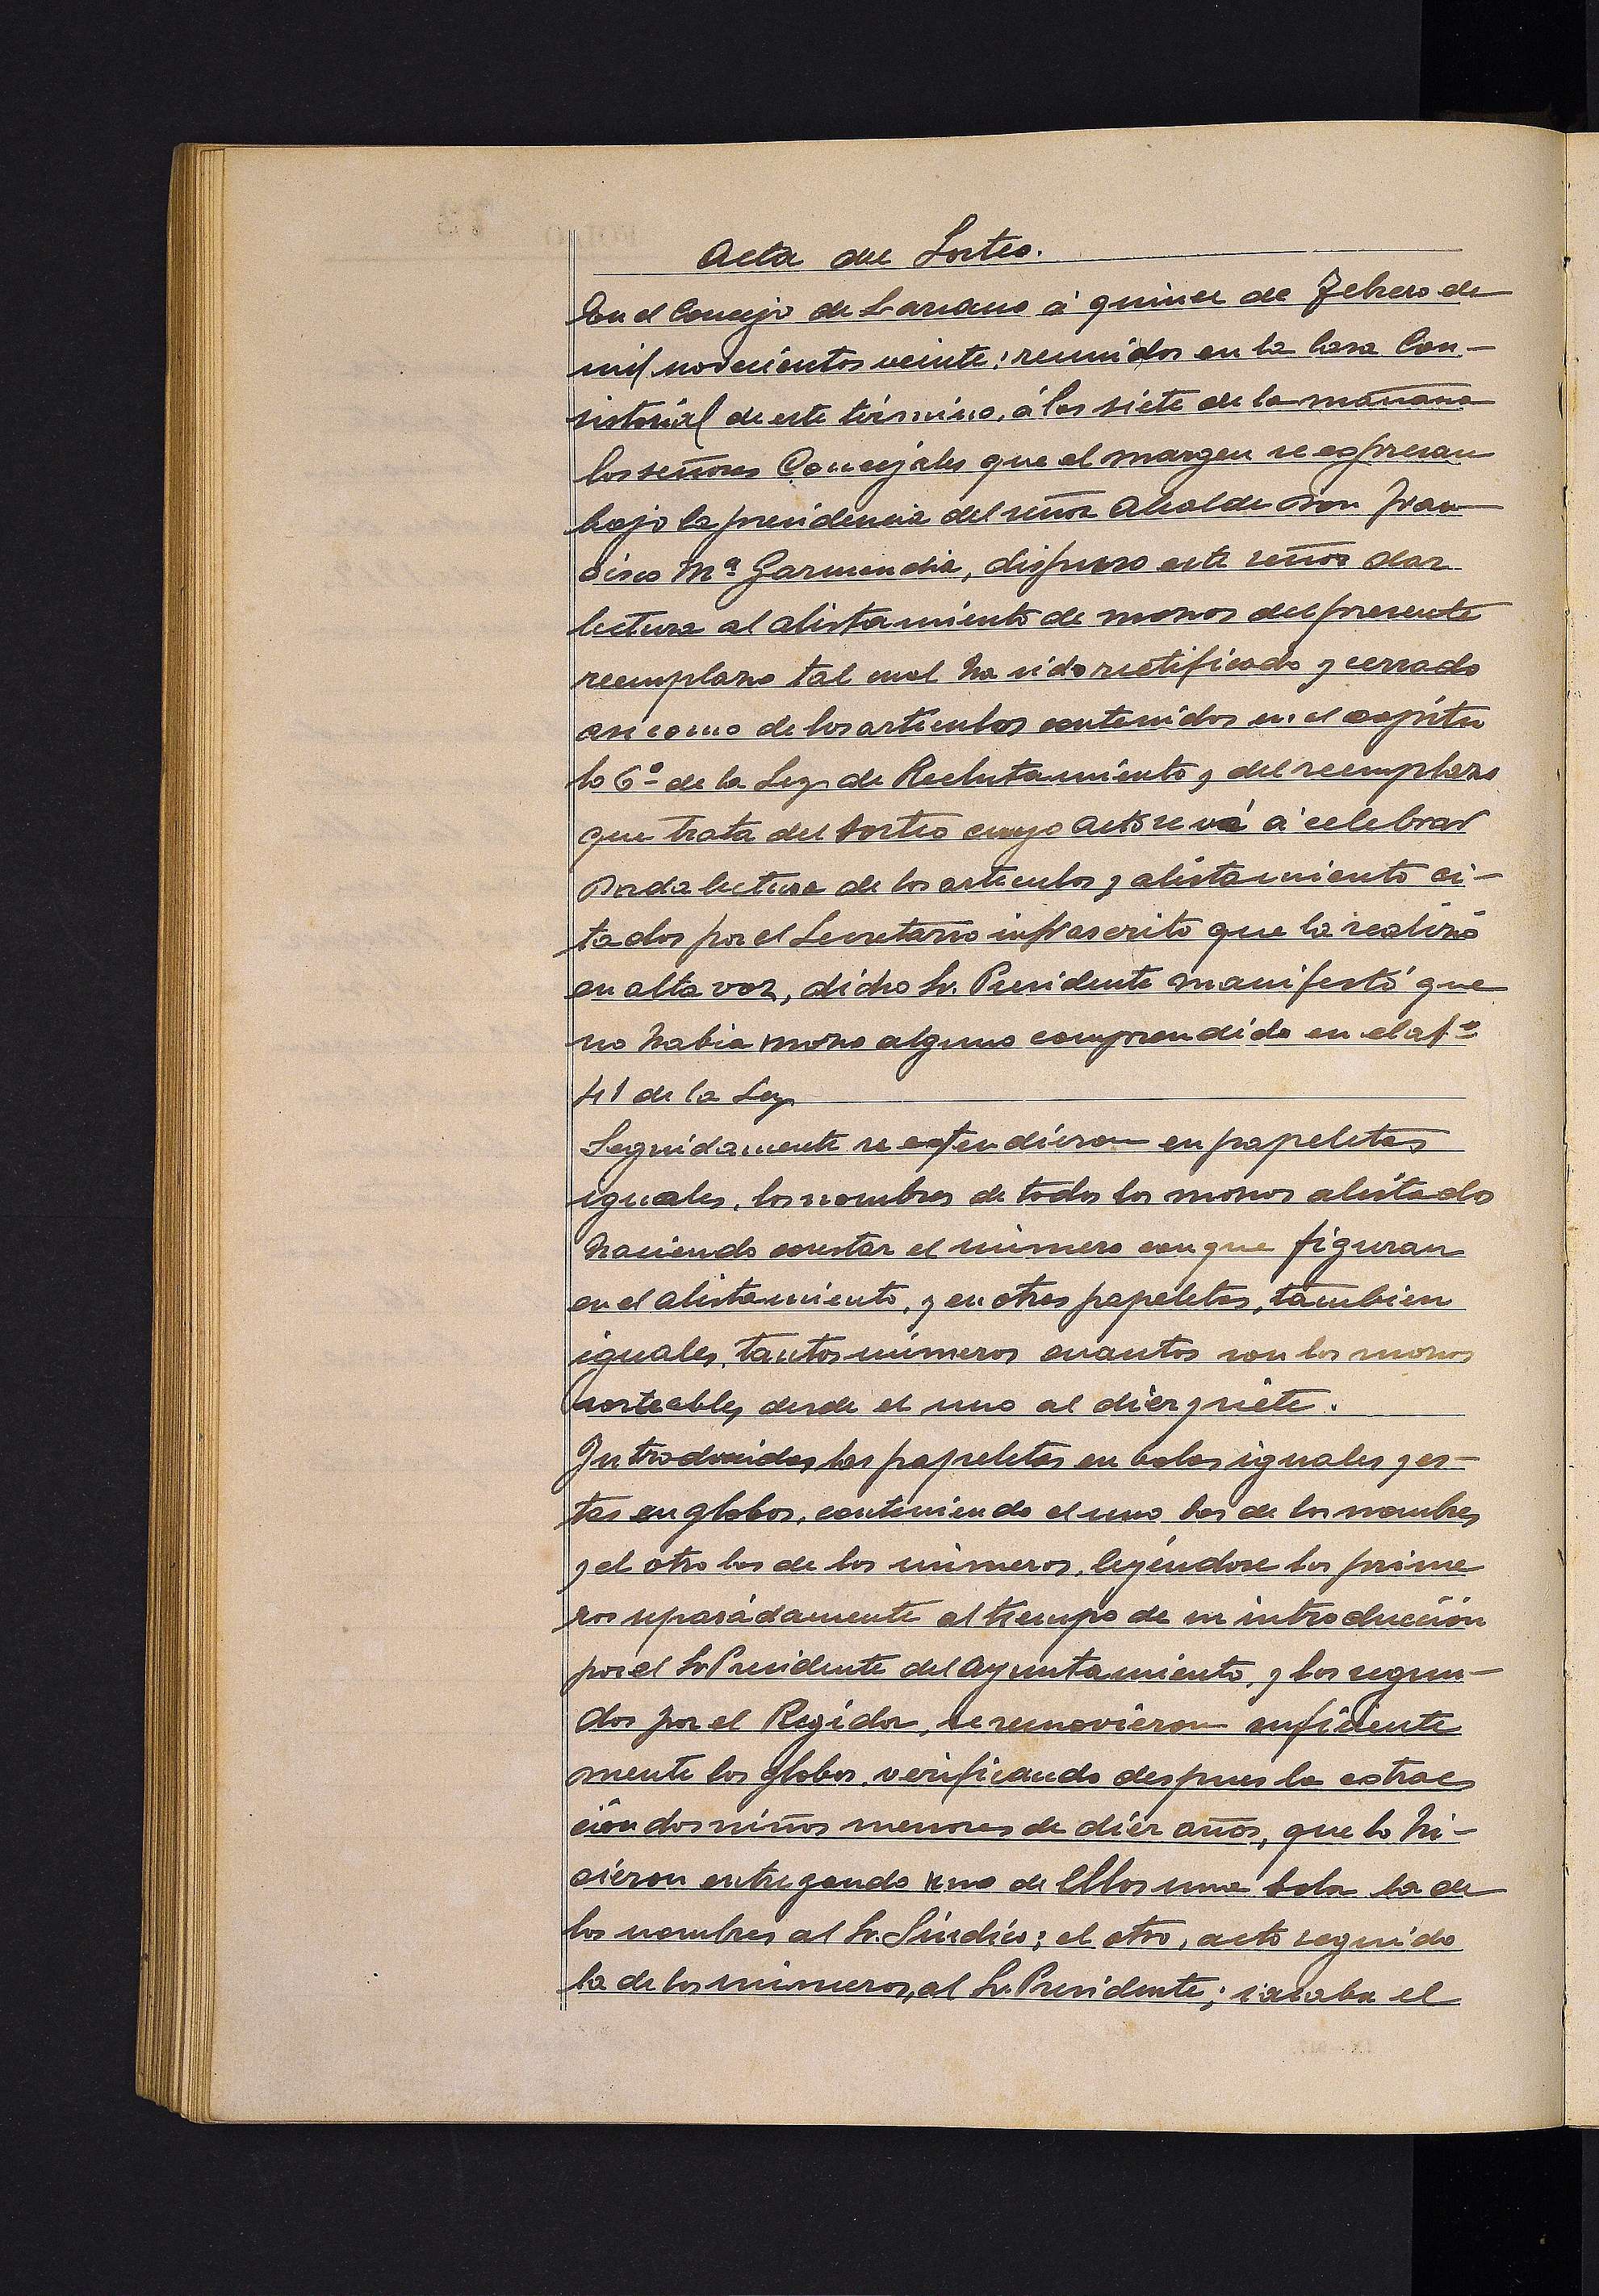 Acta del Sorteo.
En el Concejo de Larraun á quince de Febrero de
mil novecientos veinte: reunidos en la Casa Con-
sistorial de este término, á las siete de la mañana
los señores Concejales que al margen se espresan
bajo la presidencia del señor Alcalde Don Fran
cisco Mª Garmendia, dispuso este señor dar
lectura al alistamiento de mozos del presente
reemplazo tal cual ha sido rectificado y cerrado
asi como de los artículos contenidos en el capítu
lo 6º de la Ley de Reclutamiento y del reemplazo
que trata del sorteo cuyo acto se vá á celebrar
Dada lectura de los artículos y alistamiento ci-
tados por el Secretario infrascrito que la realizó
en alta voz, dicho Sr. Presidente manifestó que
no habia mozo alguno comprendido en el atº
41 de la Ley
Seguidamente se estendieron en papeletas
iguales, los nombres de todos los mozos alistado
haciendo constar el número con que figuran
en el alistamiento, y en otras papeletas, tambien
iguales, tantos números cuantos son los mozos
sorteables desde el uno al diez y siete.
Introducidas las papeletas en bolas iguales y es-
tas en globos, conteniendo el uno las de los nombres
y el otro las de los números, leyéndose los prime
ros separádamente al tiempo de su introducción
por el Sr Presidente del Ayuntamiento, y los segun-
dos por el Regidor, se removieron suficiente
mente los globos, verificando despues la estrac
ción dos niños menores de diéz años, que lo hi-
cieron entregando uno de Ellos una bola la de
los nombres al Sr. Síndico; el otro, acto seguido
la de los números, al Sr. Presidente; sacaba el